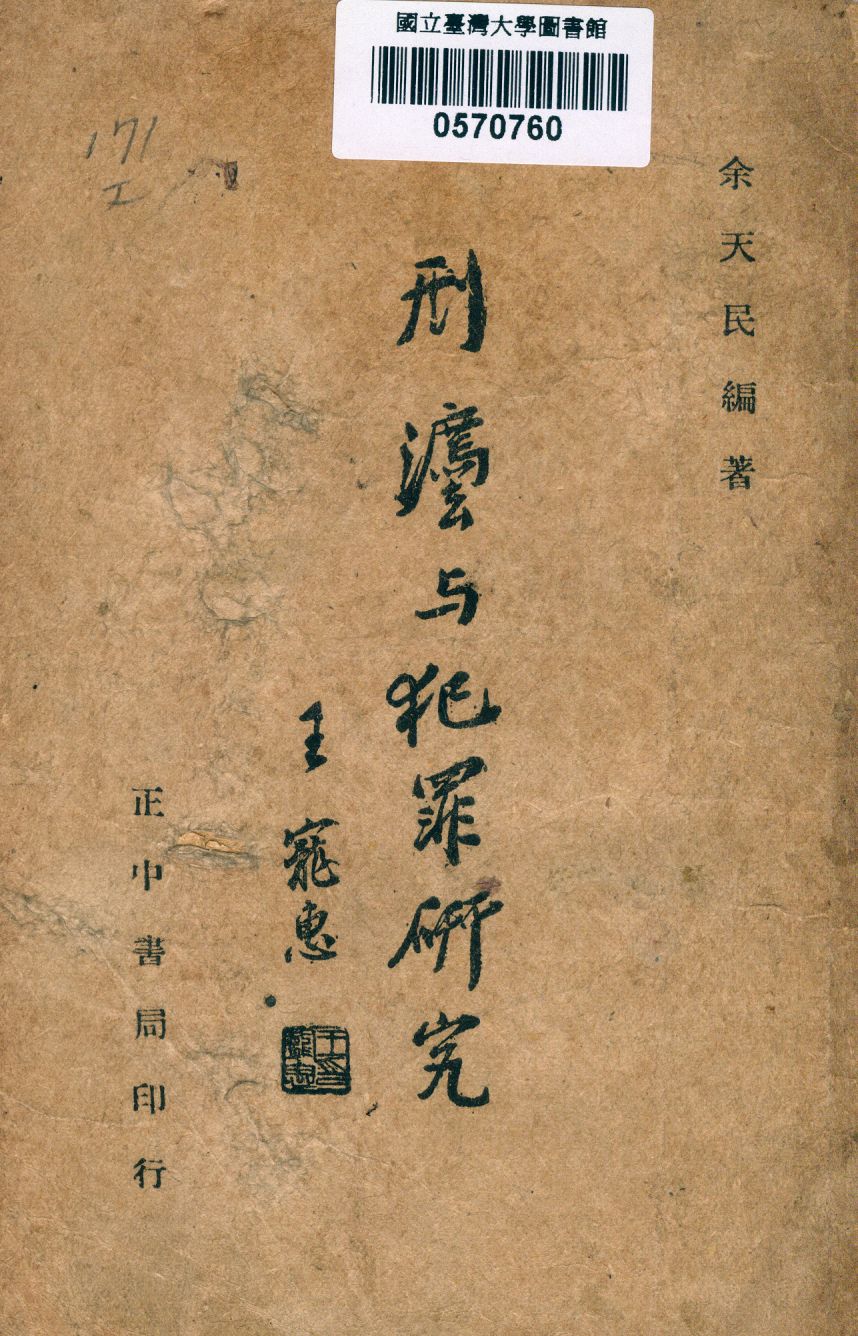 國立臺灣大學圖書館
0570760
171
余天民編著
刑灋与犯罪研究
王寵惠
正中書局印行